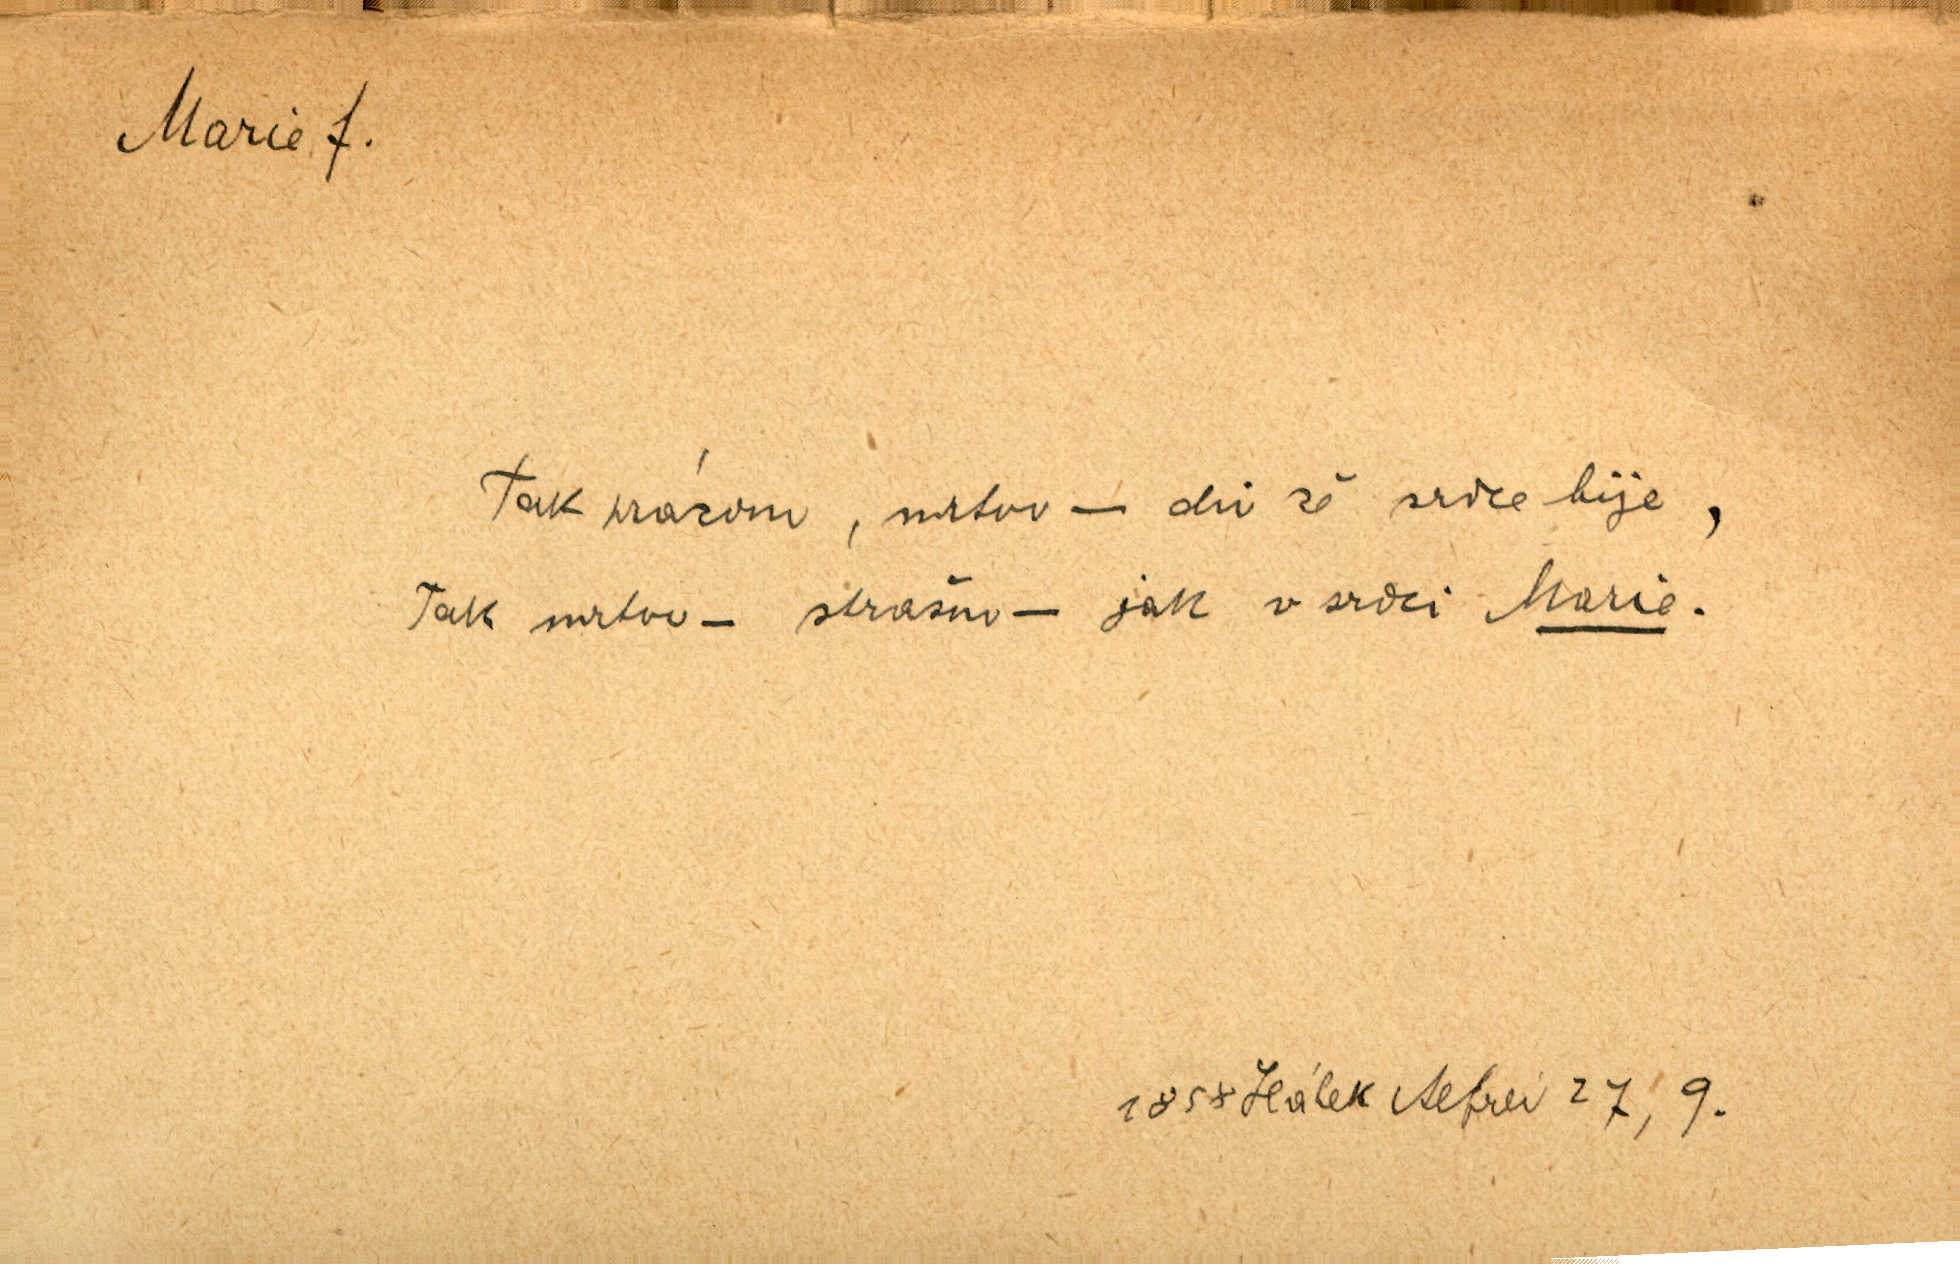 Marie f.
Tak prázdno, mrtvo — dni zř srdce bije,
Tak mrtvo — strašno — jak v srdci Marie.
1858 Hálek Alfred 27, 9.